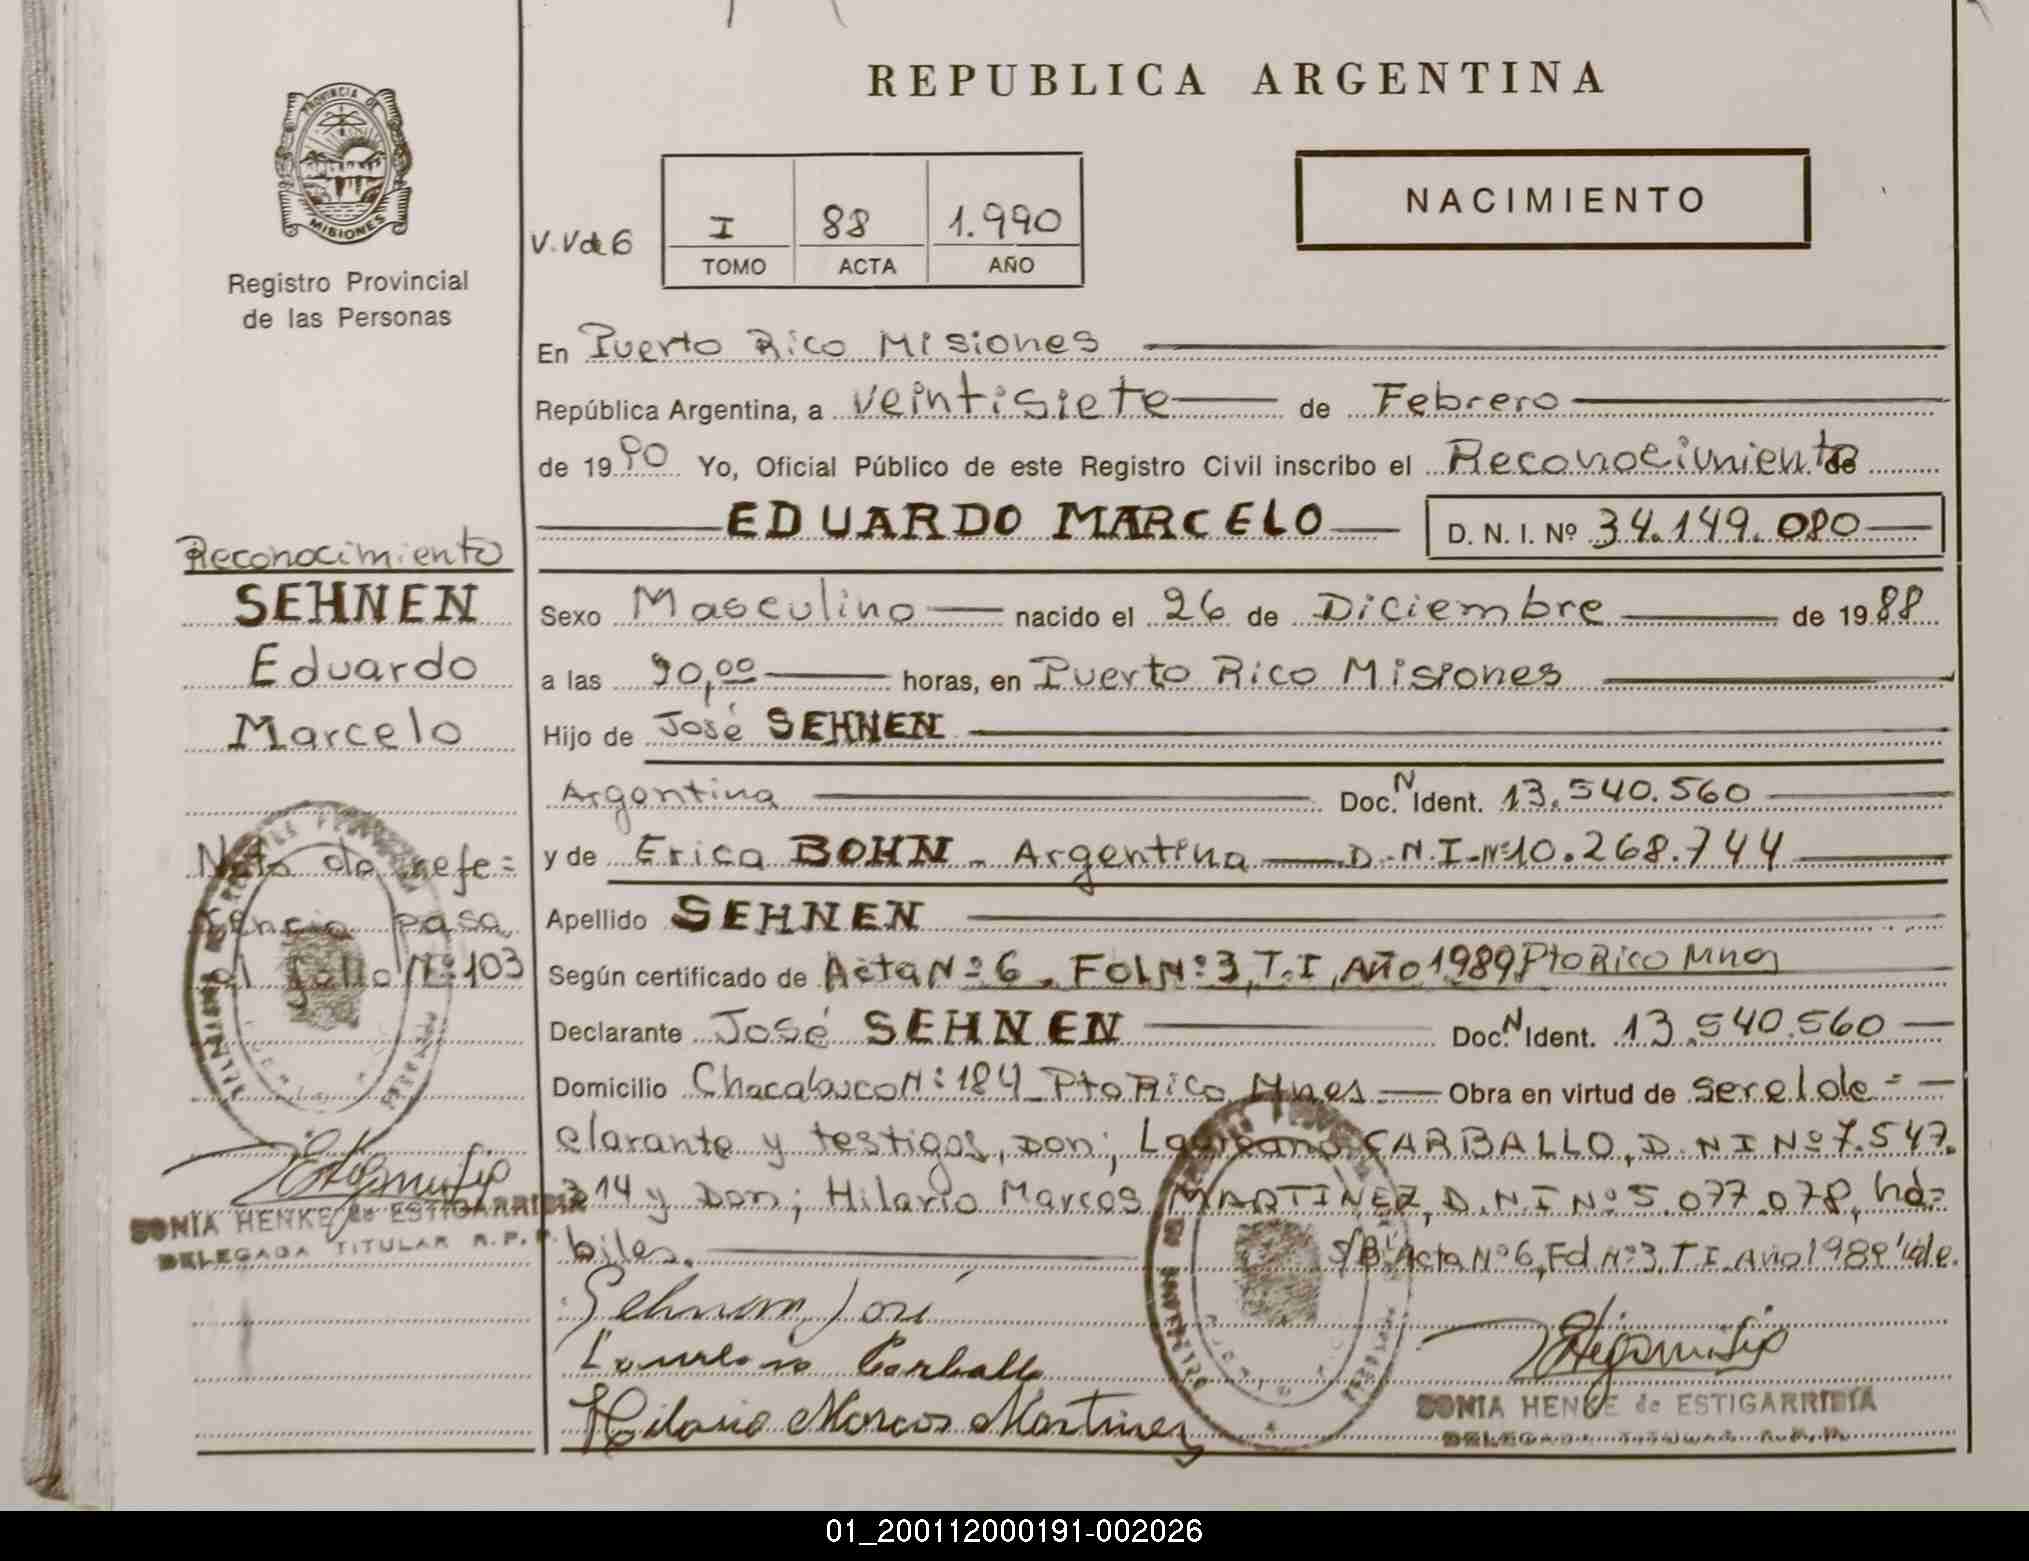 REPUBLICA ARGENTINA
PROVINCIA DE
MISIONES
Registro Provincial
de las Personas
NACIMIENTO
V.Vde6
I 88 1.990
TOMO ACTA AÑO
En Puerto Rico Misiones
República Argentina, a veintisiete de Febrero
de 1990 Yo, Oficial Público de este Registro Civil inscribo el Reconocimiento de
EDUARDO MARCELO D. N. I. Nº 34.149.080
Sexo Masculino nacido el 26 de Diciembre de 1988
a las horas, en Puerto Rico Misiones
Hijo de José SEHNEN
Argentina Doc. N Ident. 13.540.560
y de Erica BOHN - Argentina D.N.I.Nº10.268.744
Apellido SEHNEN
Según certificado de Acta Nº 6, Fol Nº 3, T. I, Año 1989 Pto Rico Mnes
Declarante José SEHNEN Doc. N Ident. 13.540.560
Domicilio Chacabuco Nº 184 - Pto Rico Mnes Obra en virtud de ser el de=
clarante y testigos, Don; Laureano CARBALLO, D.N I Nº 7.547.
314 y Don; Hilario Marcos MARTINEZ, D.N.I Nº 5.077.078, há=
biles. S/B: Acta Nº 6, Fol Nº 3, T I Año 1989 Vale.
Sehnen José
Laureano Carballo
Hilario Marcos Martinez
SONIA HENKE de ESTIGARRIBIA
DELEGADA TITULAR R.P.P.
Reconocimiento
SEHNEN
Eduardo
Marcelo
Nota de refe=
rencia pasa
al folio Nº 103
SONIA HENKE de ESTIGARRIBIA
DELEGADA TITULAR R.P.P.
01_200112000191-002026